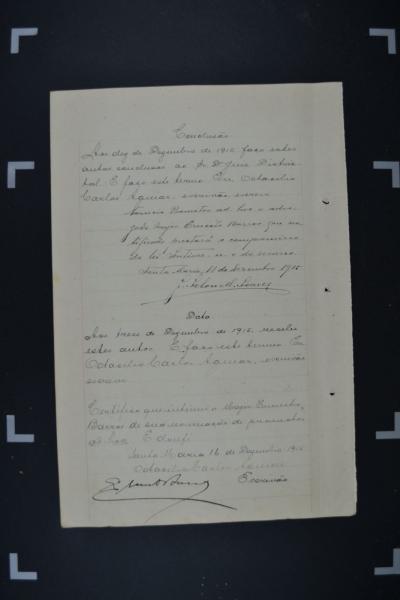 Conclusão
Aos dez de Dezembro de 1915 faço estes
autos conclusos ao Sr. Dr. Juiz Distric-
tal. E faço este termo. Eu Octacilio
Carlos Aguiar, escrivão, escrevi
Nomeio Promotor ad hoc o advo-
gado Major Ernesto Barros que no-
tificado prestará o compromisso
da lei.
Santa Maria, 11 de Dezembro 1915
J. Nelson M. Soares
Data
Aos treze de Dezembro de 1915, recebi
estes autos. E faço este termo. Eu
Octacilio Carlos Aguiar, escrivão
escrevi.
Certifico que intimei o Major Ernesto
Barros de sua nomeação de promotor
ad-hoc. E dou fé
Santa Maria 16 de Dezembro 1915
Octacilio Carlos Aguiar
Escrivão